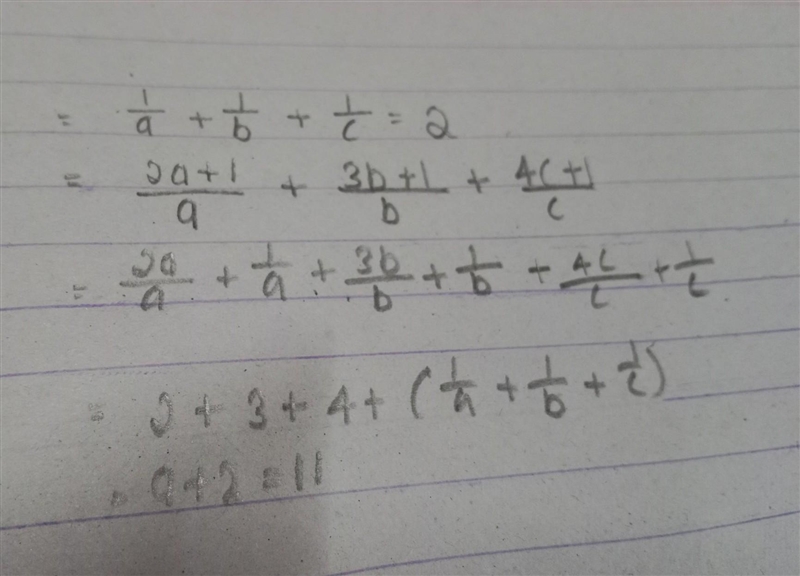 = 1/a + 1/b + 1/c = 2
= 2a+1/a + 3b+1/b + 4c+1/c
= 2a/a + 1/a + 3b/b + 1/b + 4c/c + 1/c
= 2 + 3 + 4 + (1/a + 1/b + 1/c)
= 9+2 = 11